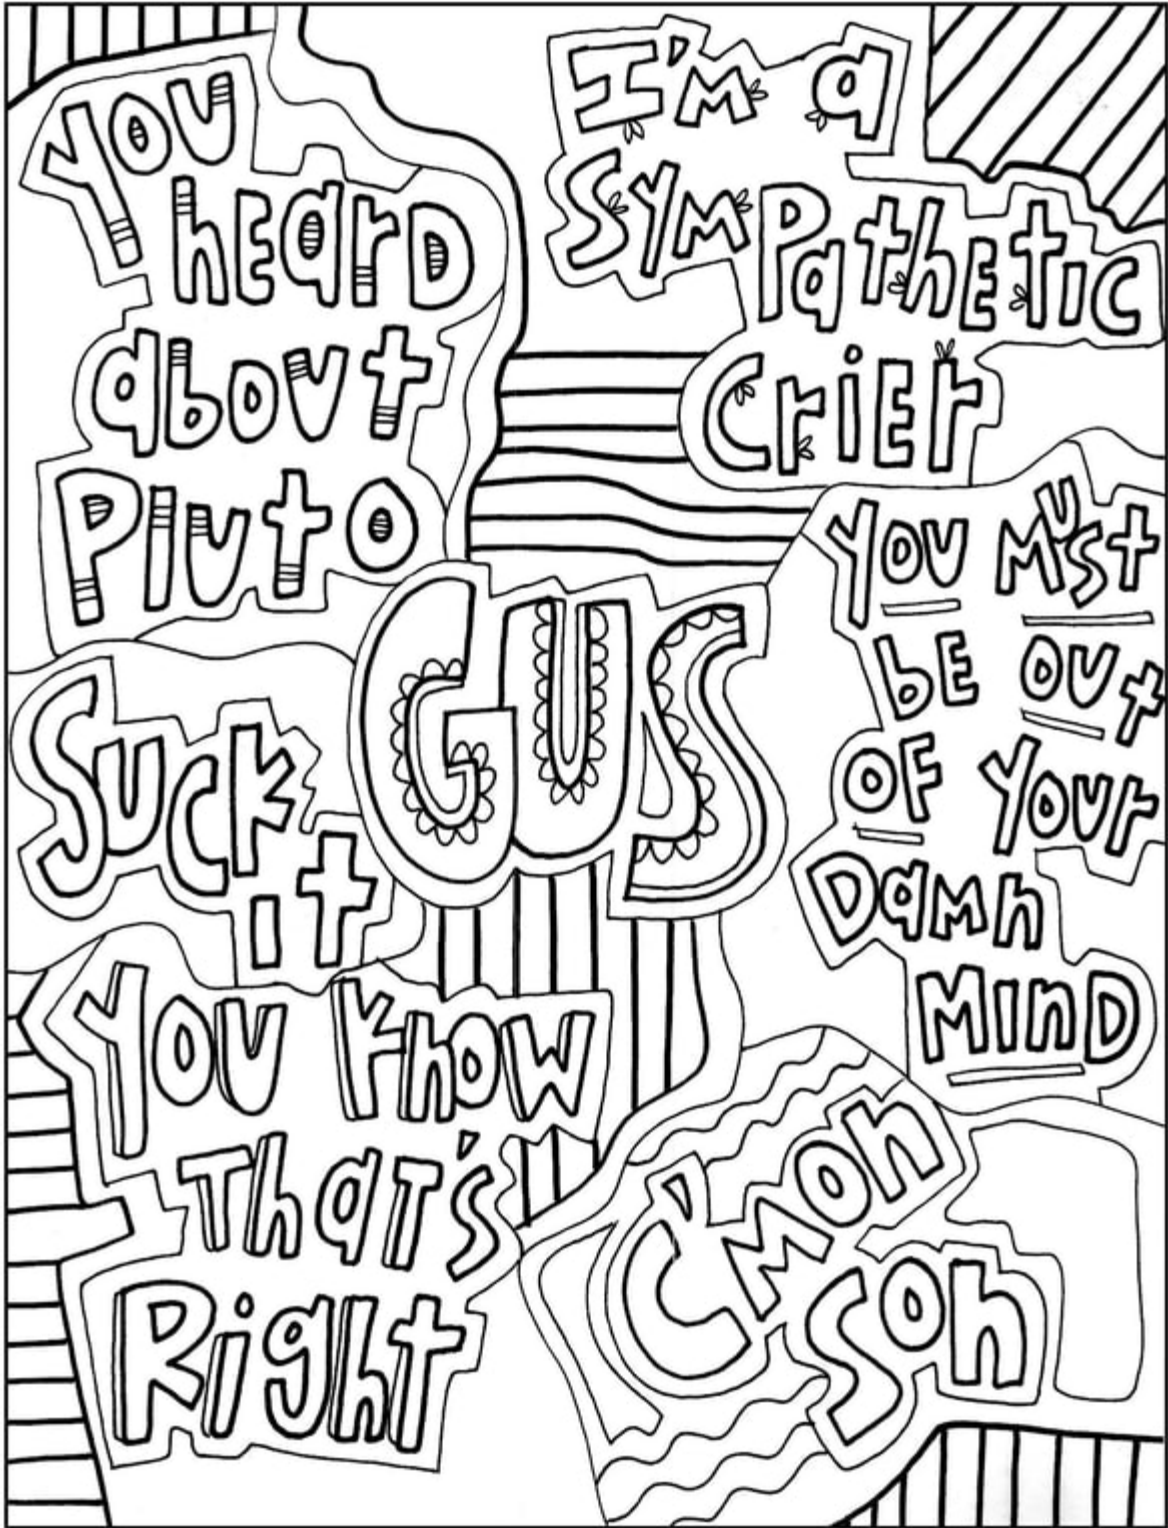 You
heard
about
Pluto
I'm a
Sympathetic
Crier
GUS
You Must
be out
of Your
Damn
Mind
Suck
it
You know
That's
Right
C'mon
Son